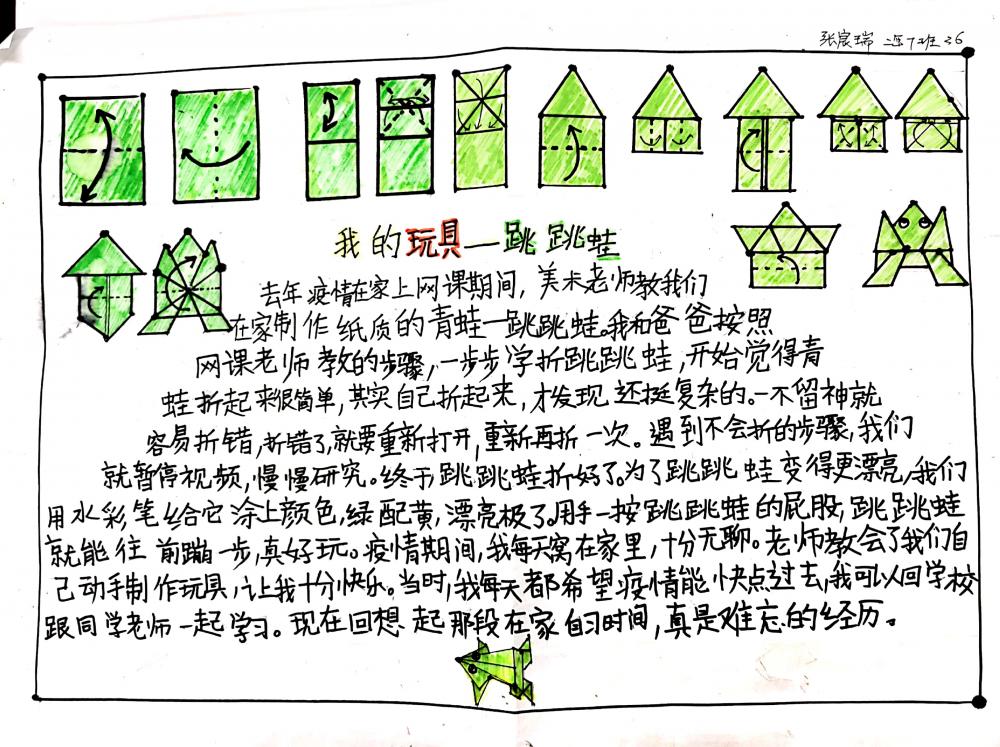 张宸瑞 二年7班 36
我的玩具—跳跳蛙
去年疫情在家上网课期间，美术老师教我们
在家制作纸质的青蛙—跳跳蛙。我和爸爸按照
网课老师教的步骤，一步步学折跳跳蛙，开始觉得青
蛙折起来很简单，其实自己折起来，才发现还挺复杂的。一不留神就
容易折错，折错了就要重新打开，重新再折一次。遇到不会折的步骤，我们
就暂停视频，慢慢研究。终于跳跳蛙折好了。为了跳跳蛙变得更漂亮，我们
用水彩笔给它涂上颜色，绿配黄，漂亮极了。用手一按跳跳蛙的屁股，跳跳蛙
就能往前蹦一步，真好玩。疫情期间，我每天窝在家里，十分无聊。老师教会了我们自
己动手制作玩具，让我十分快乐。当时，我每天都希望疫情能快点过去，我可以回学校
跟同学老师一起学习。现在回想起那段在家的时间，真是难忘的经历。